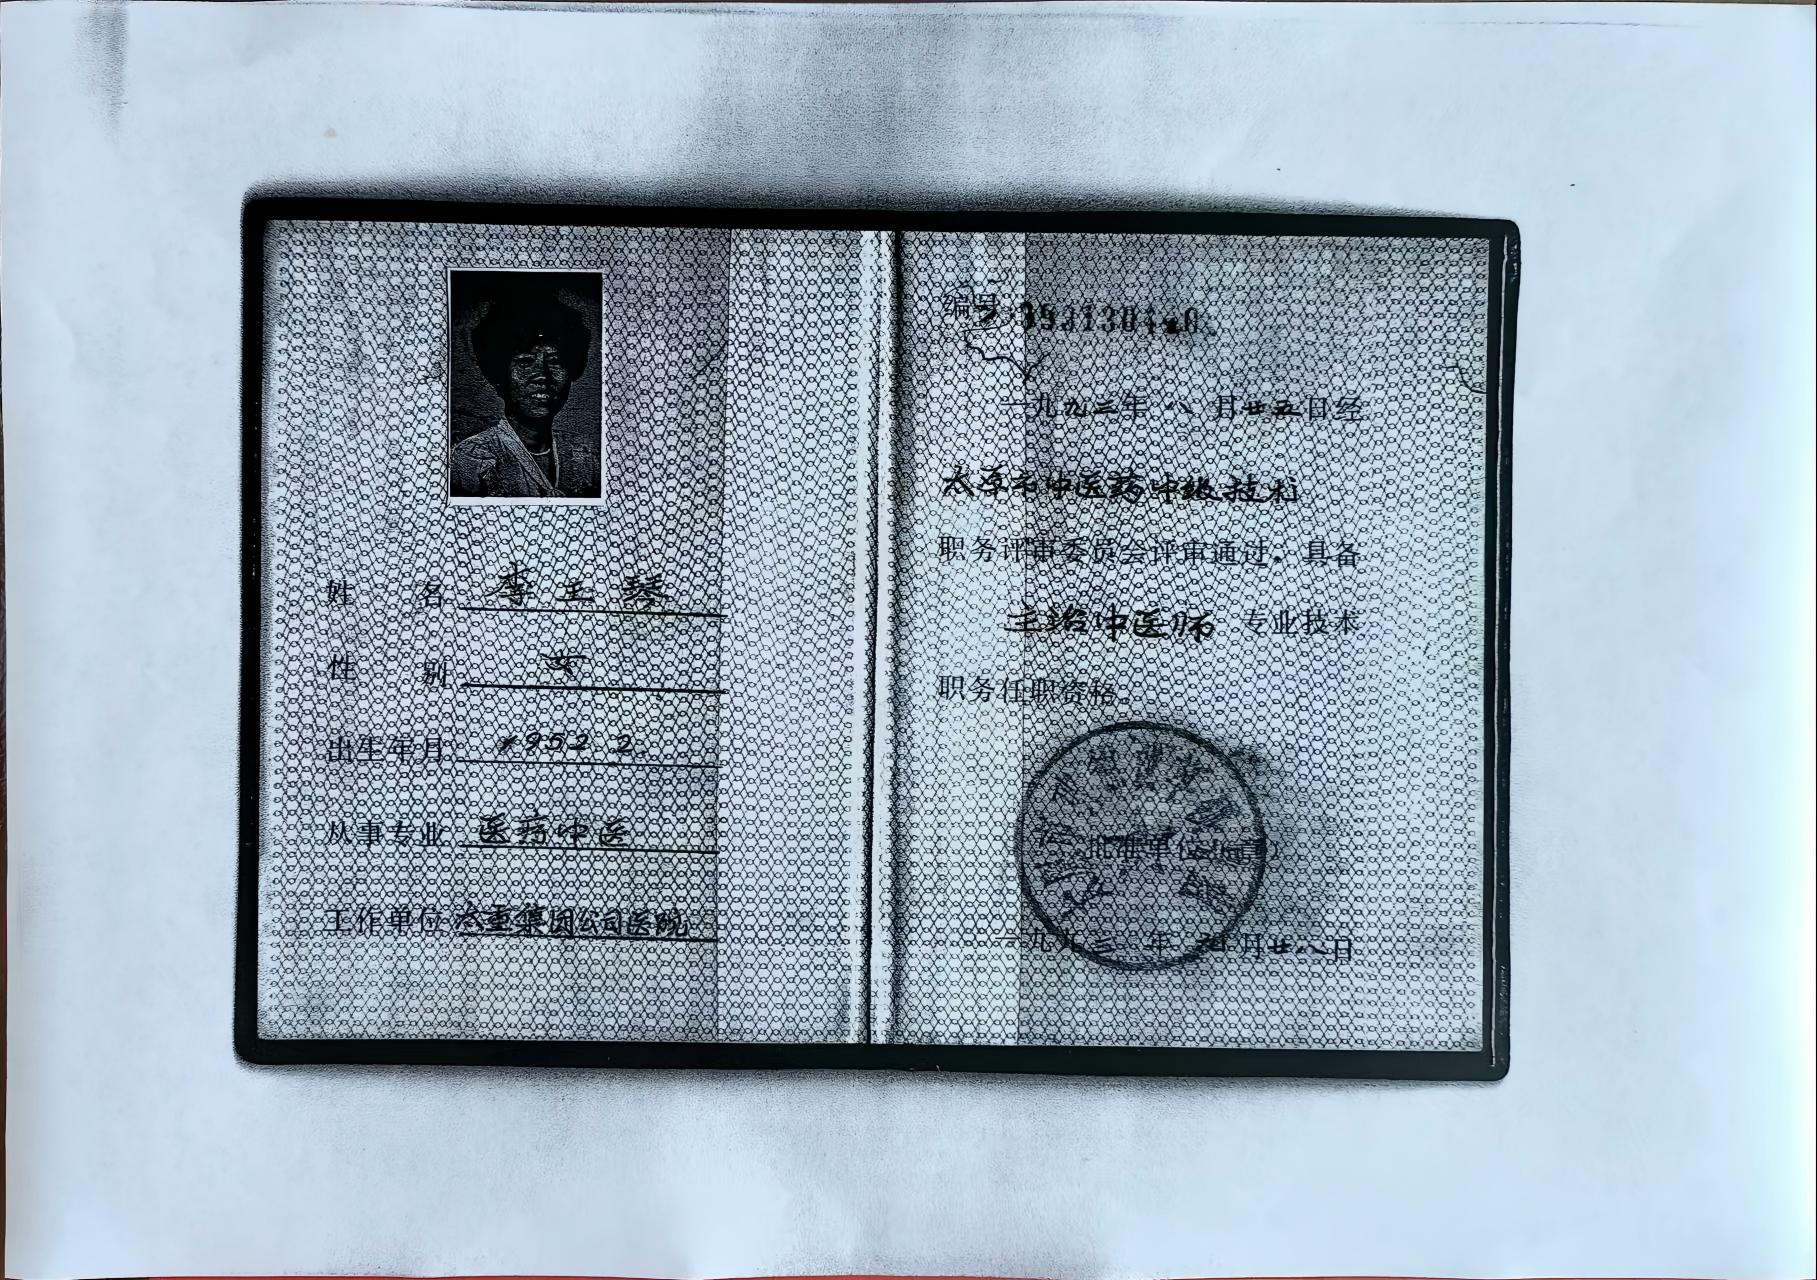 姓 名 李玉琴
性 别 女
出生年月 1952.2
从事专业 医疗中医
工作单位 太重集团公司医院
编号
一九九三年 八 月廿五日经
太原市中医药中级技术
职务评审委员会评审通过,具备
主治中医师 专业技术
职务任职资格。
批准单位(盖章)
一九九三 年 月廿八日